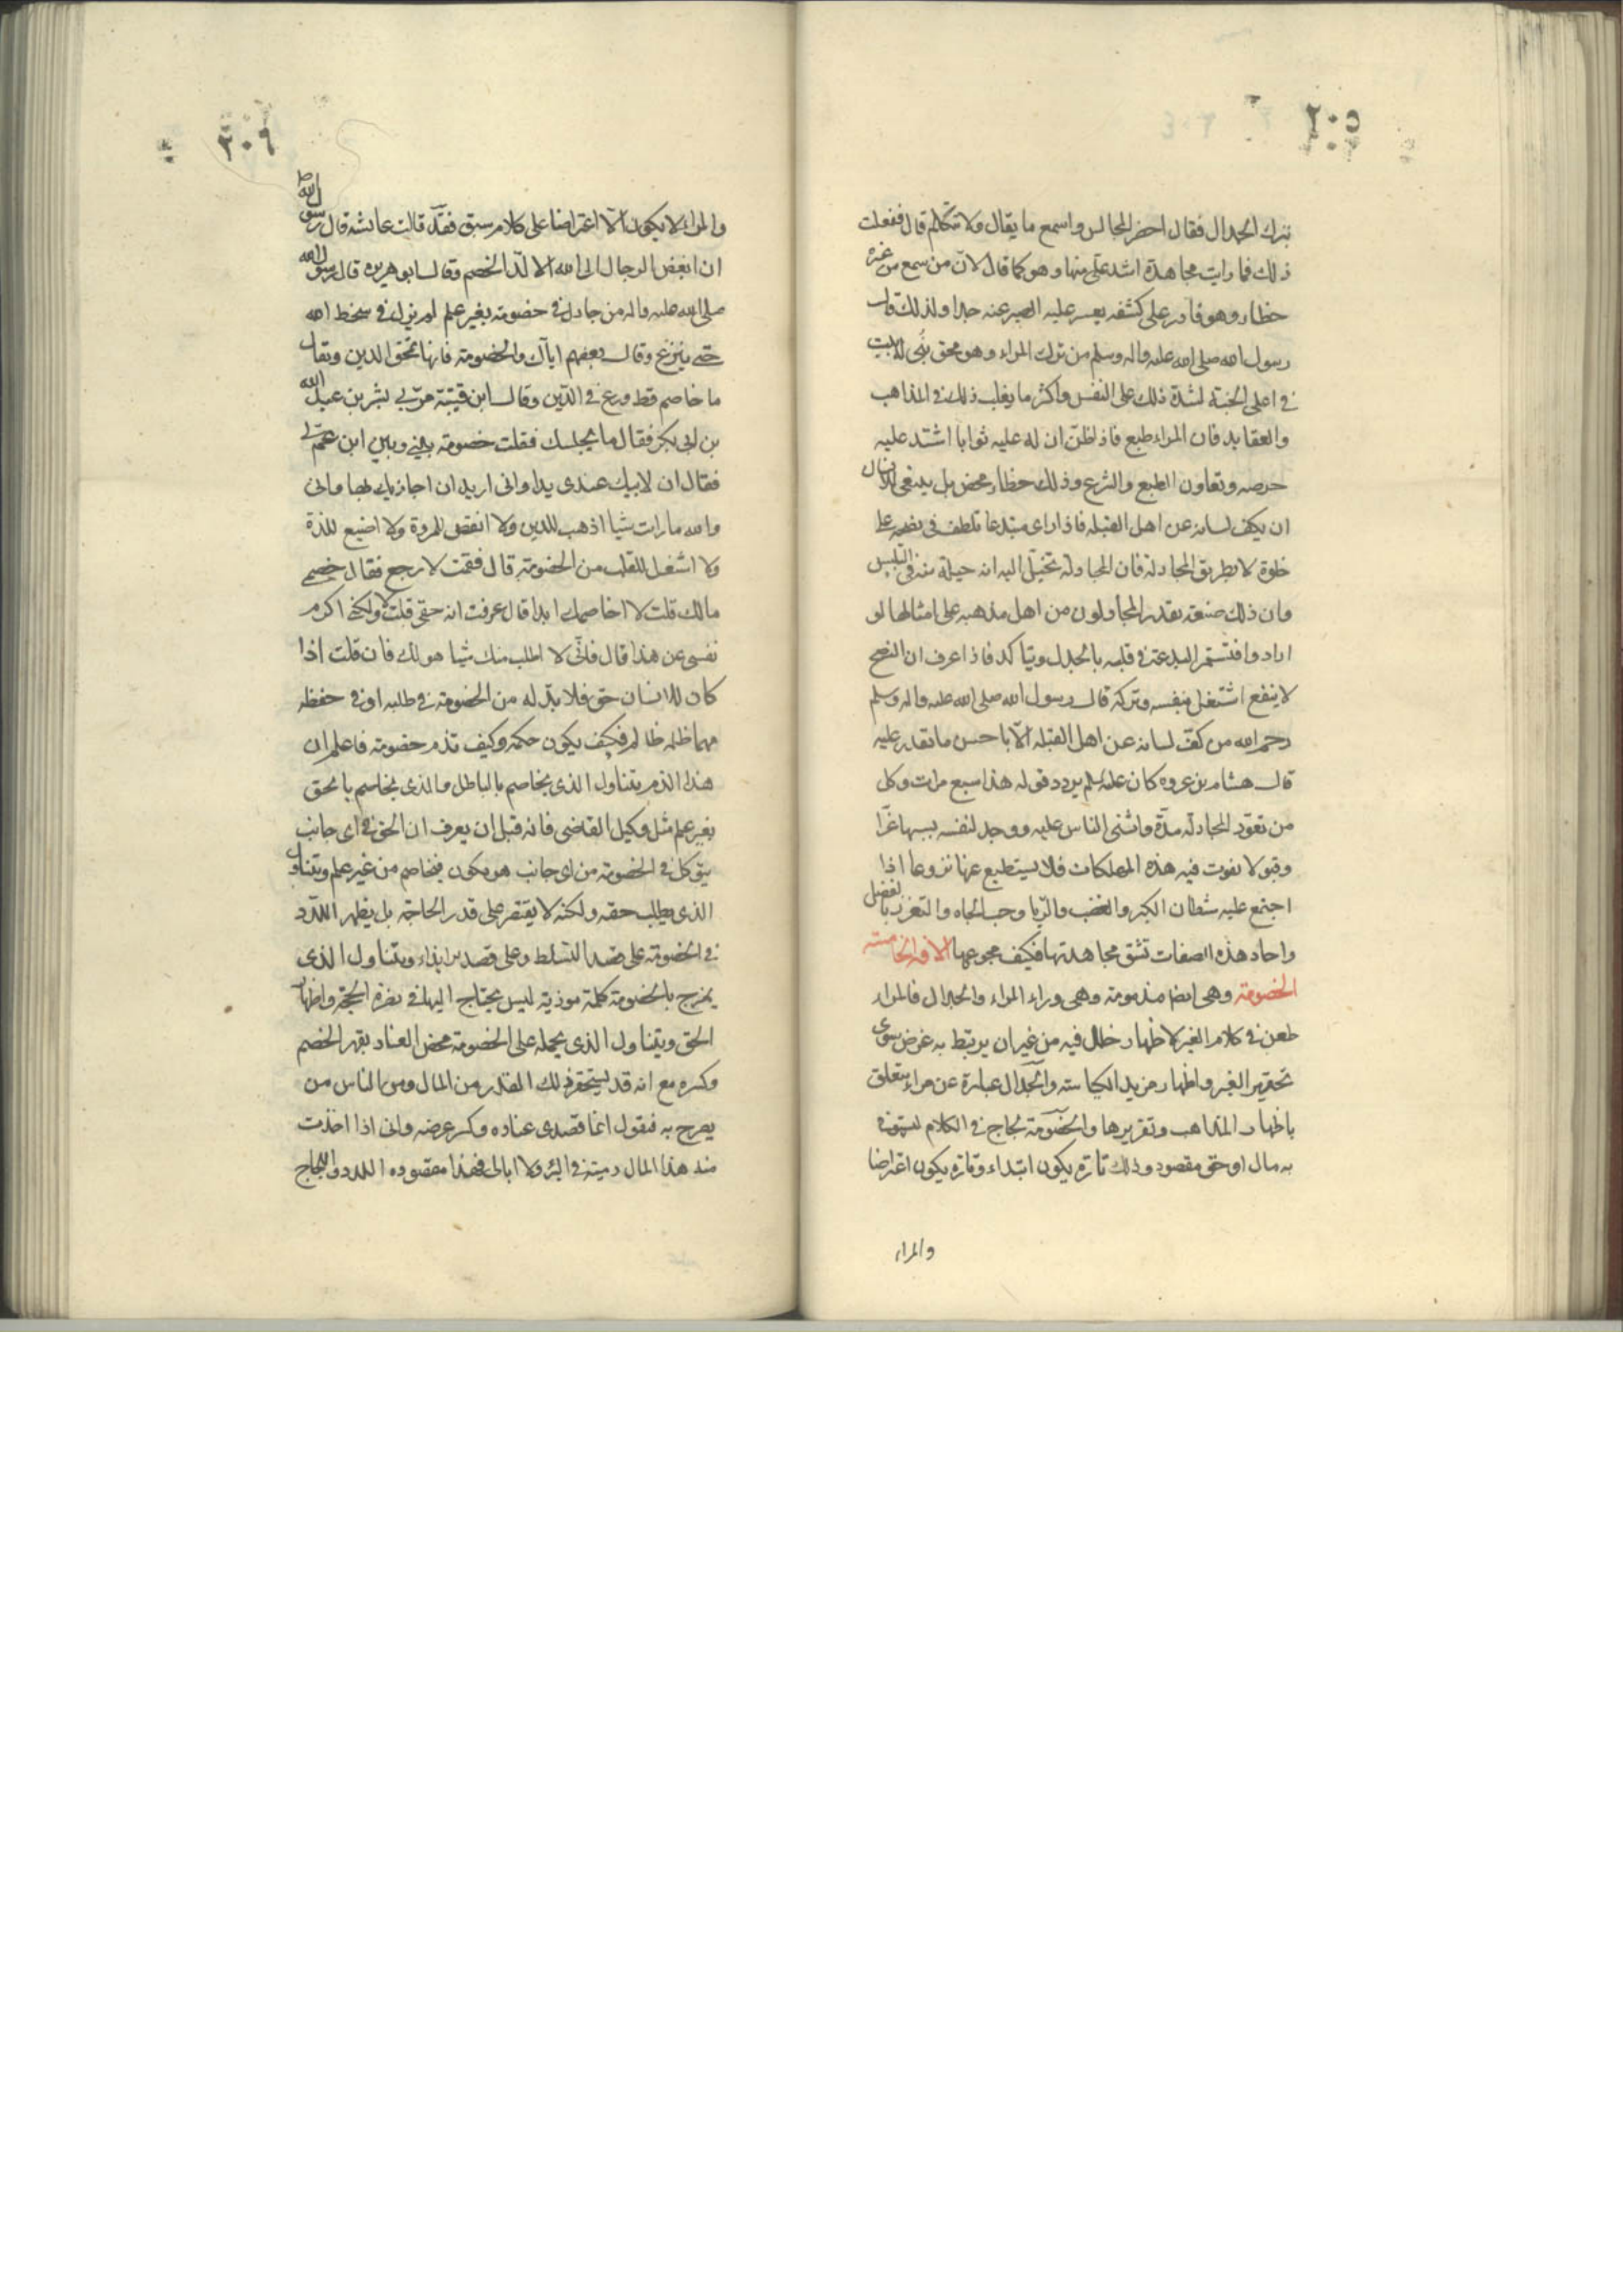 ٢٠٥
بترك الجدال فقال احضر المجالس واسمع ما يقال ولا تتكلم قال ففعلت
ذلك فما رايت مجاهدة اشد على منها وهو كما قال لان من سمع من غيره
خطاء وهو قادر على كشفه يعسر عليه الصبر عنه جدا ولذلك قال
رسول الله صلى الله عليه واله وسلم من ترك المراء وهو محق بنى له بيت
في اعلى الجنة لشدة ذلك على النفس واكثر ما يغلب ذلك في المذاهب
والعقايد فان المراء طبع فاذا ظن ان له عليه ثوابا اشتد عليه
حرصه وتعاون الطبع والشرع وذلك خطاء محض بل ينبغي للانسان
ان يكف لسانه عن اهل القبلة فاذا راى مبتدعا تلطف في نصحه على
خلوة لا بطريق المجادلة فان المجادلة تخيل اليه انه حيلة منه في التلبيس
وان ذلك صنعة يقدر المجادلون من اهل مذهبه على امثالها لو
ارادوا فتستمر البدعة في قلبه بالجدل ويتاكد فاذا عرف ان النصح
لا ينفع اشتغل بنفسه وتركه قال رسول الله صلى الله عليه واله وسلم
رحم الله من كف لسانه عن اهل القبلة الا باحسن ما يقدر عليه
قال هشام بن عروه كان عليه السلم يردد قوله هذا سبع مرات وكل
من تعود المجادلة مدة واثنى الناس عليه ووجد لنفسه بسببها عزا
وقبولا تقوت فيه هذه المهلكات فلا يستطيع عنها نزوعا اذا
اجتمع عليه شيطان الكبر والغضب والريا وحب الجاه والتعزز بالفضل
واحاد هذه الصفات تشق مجاهدتها فكيف مجموعها الافة الخامسة
الخصومة وهي ايضا مذمومة وهي وراء المراء والجدال فالمراء
طعن في كلام الغير لاظهار خلل فيه من غير ان يرتبط به غرض سوى
تحقير الغير واظهار مزيد الكياسة والجدال عبارة عن مراء يتعلق
باظهار المذاهب وتقريرها والخصومة لجاج في الكلام ليستوفي
به مال او حق مقصود وذلك تارة يكون ابتداء وتارة يكون اعتراضا
والمراء
٢٠٦
والمراء لا يكون الا اعتراضا على كلام سبق فقد قالت عائشة قال رسول الله ص
ان ابغض الرجال الى الله الالد الخصم وقال ابو هريره قال رسول الله
صلى الله عليه واله من جادل في خصومة بغير علم لم يزل في سخط الله
حتى ينزع وقال بعضهم اياك والخصومة فانها تمحق الدين ويقال
ما خاصم قط ورع في الدين وقال ابن قتيبة مر بي بشر بن عبد الله
بن ابي بكر فقال ما يجلسك فقلت خصومة بيني وبين ابن عم لي
فقال ان لابيك عندى يدا واني اريد ان اجازيك بها واني
والله ما رايت شيا اذهب للدين ولا انقص للمروة ولا اضيع للذة
ولا اشغل للقلب من الخصومة قال فقمت لارجع فقال خصمي
مالك قلت لا اخاصمك ابدا قال عرفت انه حقي قلت لا ولكني اكرم
نفسي عن هذا قال فاني لا اطلب منك شيا هو لك فان قلت اذا
كان للانسان حق فلا بد له من الخصومة في طلبه او في حفظه
مهما ظلمه ظالم فكيف يكون حكمه وكيف تذم خصومته فاعلم ان
هذا الذم يتناول الذى يخاصم بالباطل والذى يخاصم بالحق
بغير علم مثل وكيل القاضي فانه قبل ان يعرف ان الحق في اى جانب
يتوكل في الخصومة من اى جانب هو يكون فيخاصم من غير علم ويتناول
الذى يطلب حقه ولكنه لا يقتصر على قدر الحاجة بل يظهر اللدد
في الخصومة على قصد التسلط وعلى قصد الايذاء ويتناول الذى
يمزج بالخصومة كلمة موذية ليس يحتاج اليها في نصرة الحجة واظهار
الحق ويتناول الذى يحمله على الخصومة محض العناد بقهر الخصم
وكسره مع انه قد يستحقر ذلك المقدر من المال ومن الناس من
يصرح به فيقول انما قصدى عناده وكسر عرضه واني اذا اخذت
منه هذا المال رميته في البئر ولا ابالي فهذا مقصوده اللدد واللجاج